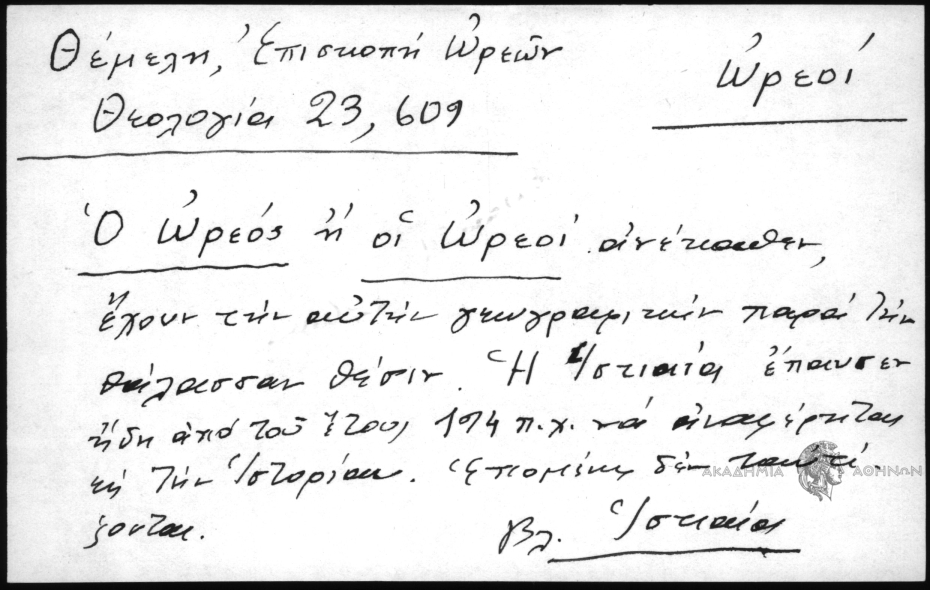 Θέμελη, Ἐπισκοπή Ὠρεῶν
Ὠρεοί
Θεολογία 23, 609
Ὁ Ὠρεός ἤ οἱ Ὠρεοί ἀνέκαθεν,
ἔχουν τήν αὐτήν γεωγραφικήν παρά τήν
θάλασσαν θέσιν. Ἡ Ἱστιαία ἔπαυσεν
ἤδη ἀπό τοῦ ἔτους 194 π.χ. νά ἀναφέρηται
εἰς τήν Ἱστορίαν. Ἑπομένως δέν ταυτί-
ζονται.
βλ. Ἱστιαία
ΑΚΑΔΗΜΙΑ ΑΘΗΝΩΝ